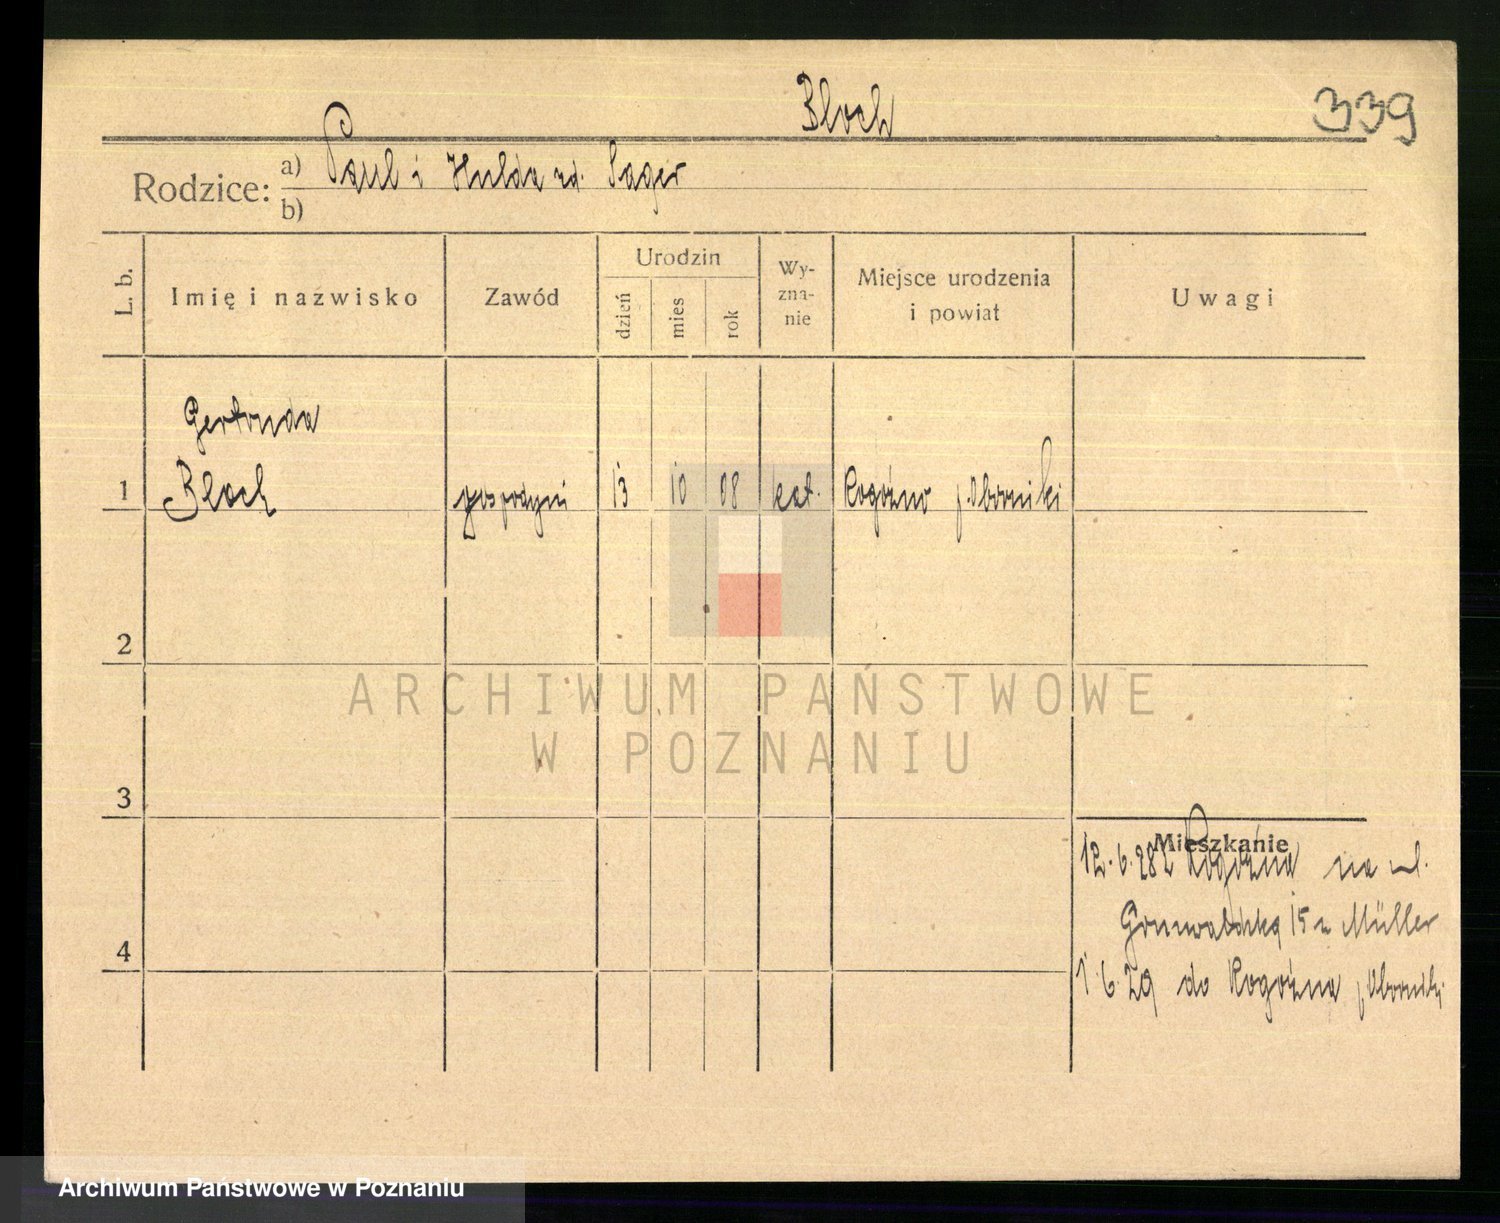 Bloch
339
Rodzice: a) Paul i Hulda zd. Sager
b)
L. b.
Imię i nazwisko
Zawód
Urodzin
dzień
mies
rok
Wy-
zna-
nie
Miejsce urodzenia
i powiat
Uwagi
Gertruda
1 Bloch gospodyni 13 10 08 kat. Rogoźno p. Oborniki
2
ARCHIWUM PAŃSTWOWE
W POZNANIU
3
Mieszkanie
12.6.28 z Rogoźna na ul.
Grunwaldzką 15 u Müller
4
1.6.29 do Rogoźna p. Oborniki
Archiwum Państwowe w Poznaniu